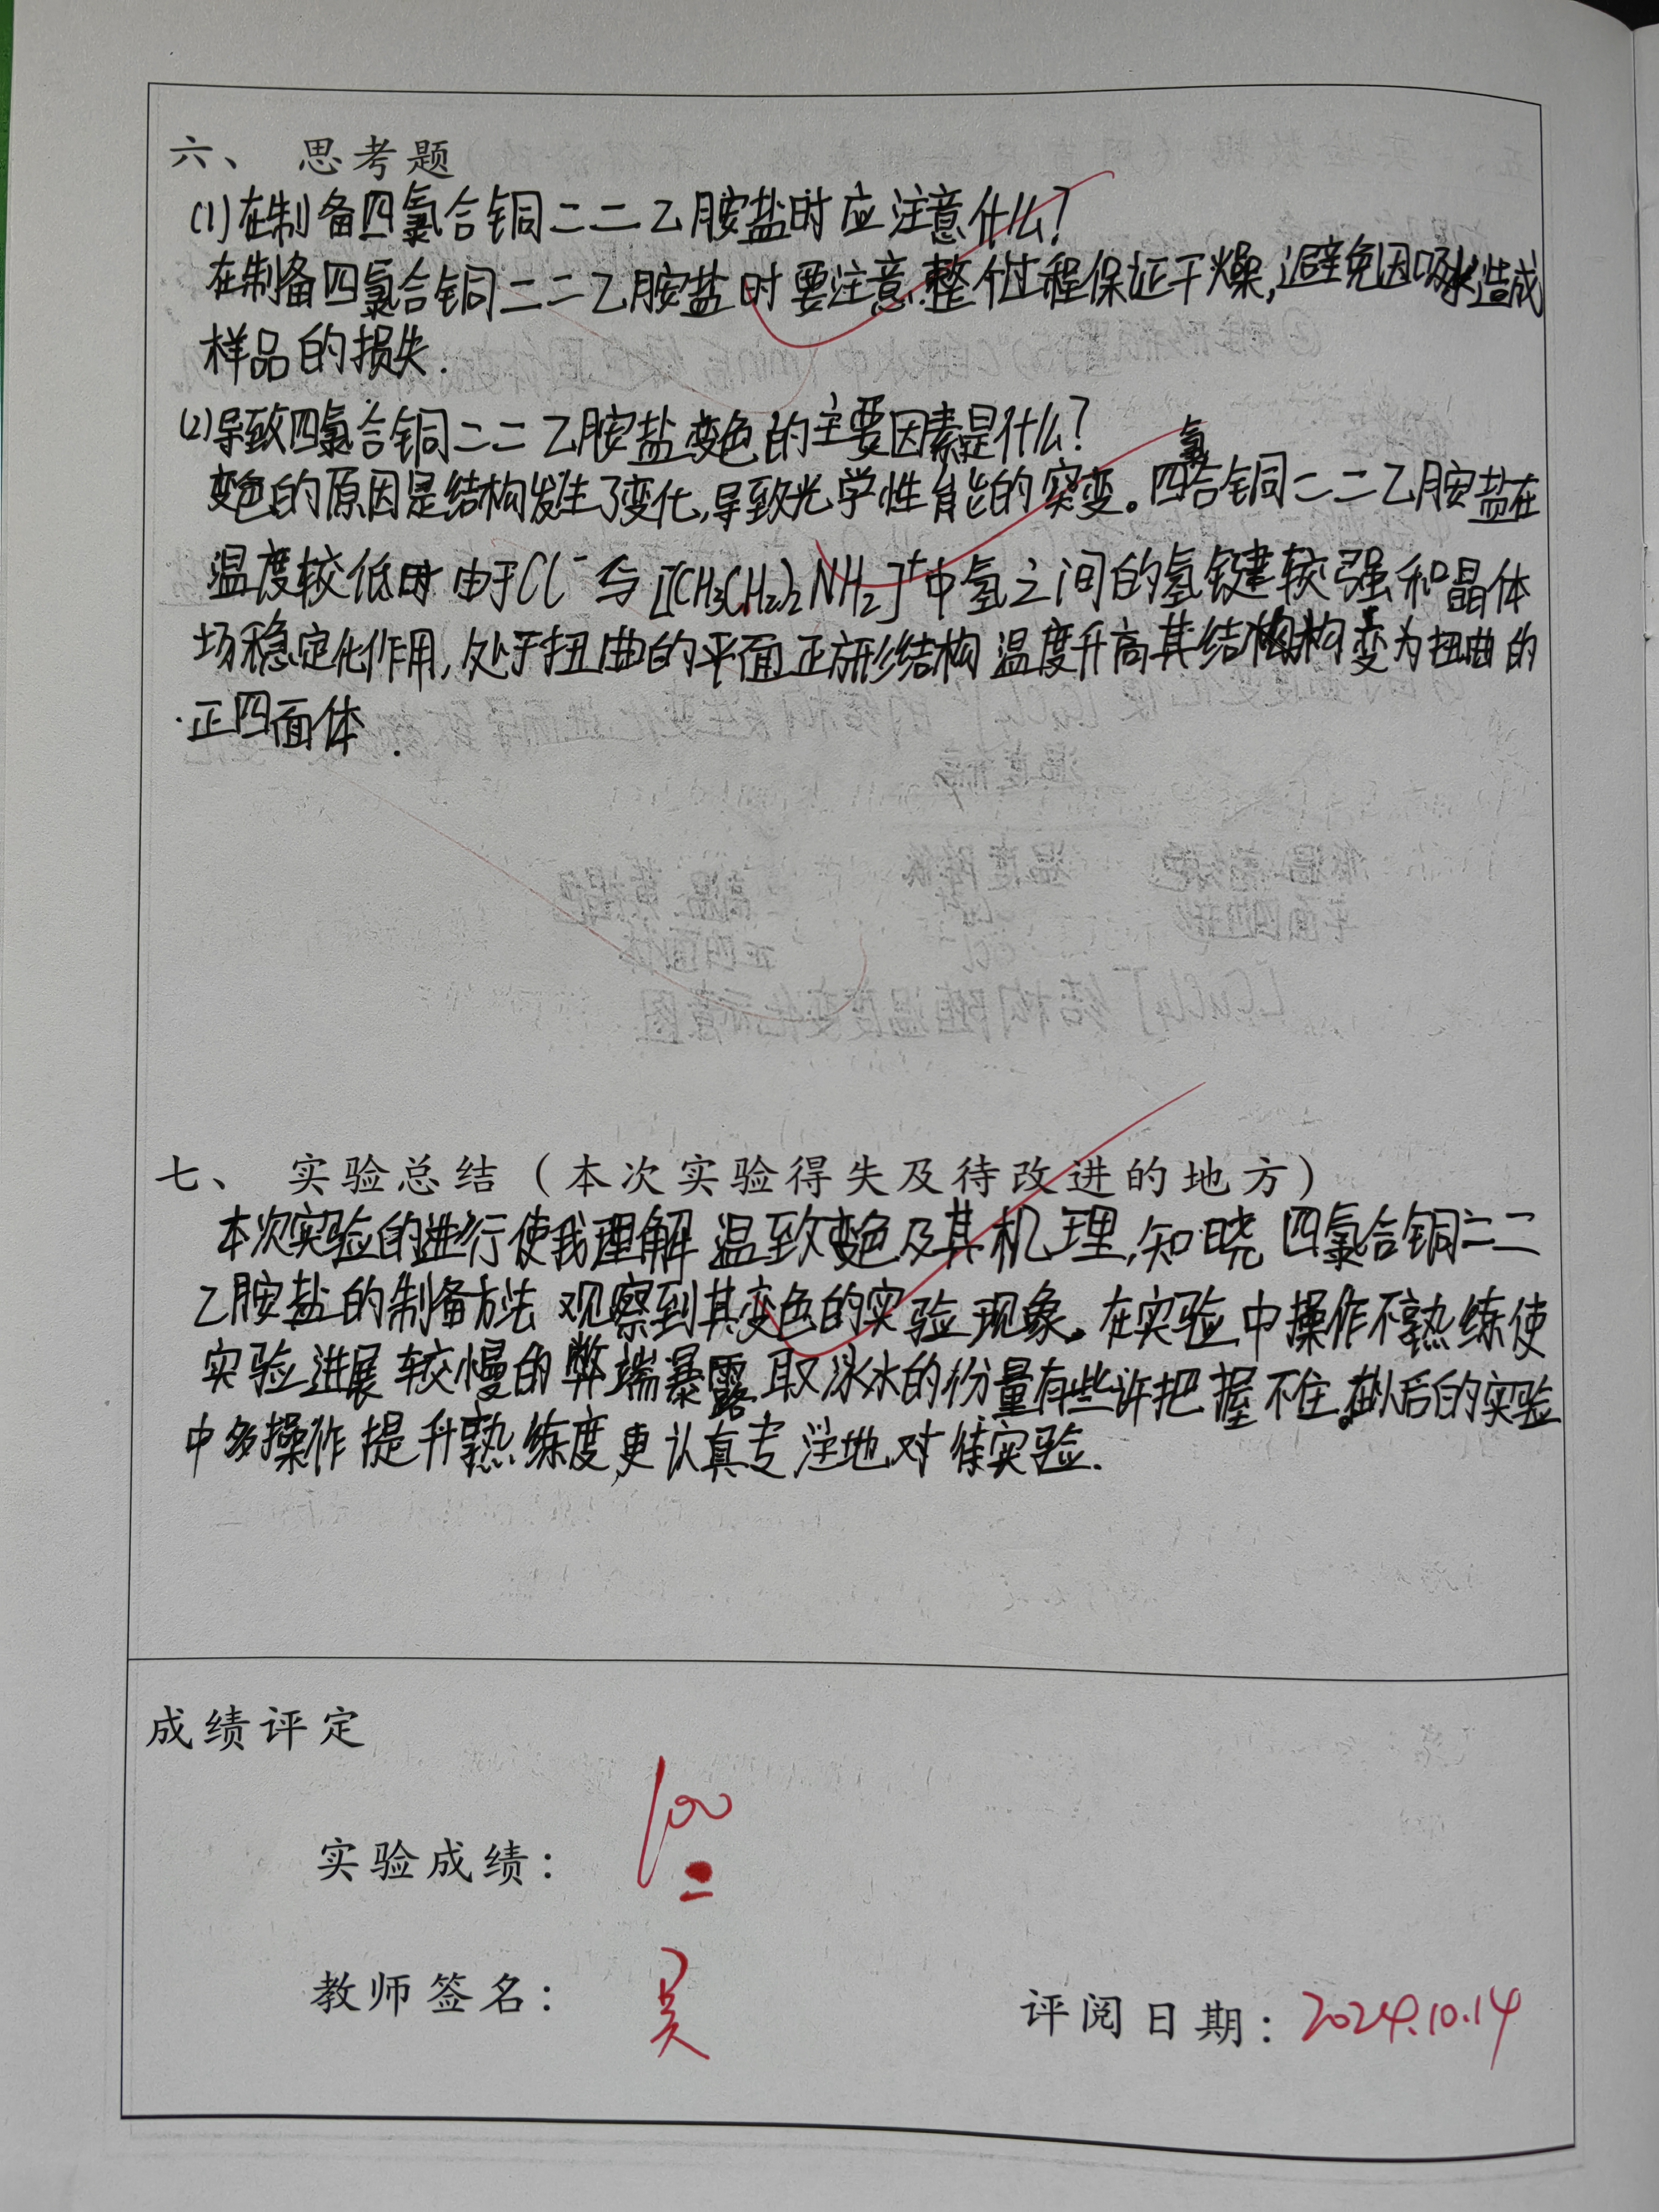 六、 思考题
(1)在制备四氯合铜二二乙胺盐时应注意什么?
在制备四氯合铜二二乙胺盐时要注意.整个过程保证干燥,避免因吸水造成
样品的损失.
(2)导致四氯合铜二二乙胺盐变色的主要因素是什么?
变色的原因是结构发生了变化,导致光学性能的突变。四氯合铜二二乙胺盐在
温度较低时由于Cl⁻与[(CH₃CH₂)₂NH₂]⁺中氢之间的氢键较强和晶体
场稳定化作用,处于扭曲的平面正方形结构 温度升高其结构 变为扭曲的
正四面体.
七、 实验总结(本次实验得失及待改进的地方)
本次实验的进行使我理解温致变色及其机理,知晓四氯合铜二二
乙胺盐的制备方法 观察到其变色的实验现象。在实验中操作不熟练使
实验进展较慢的弊端暴露 取冰水的份量有些许把握不住。在以后的实验
中多操作提升熟练度,更认真专注地对待实验.
成绩评定
实验成绩: 100
教师签名: 吴
评阅日期: 2024.10.14